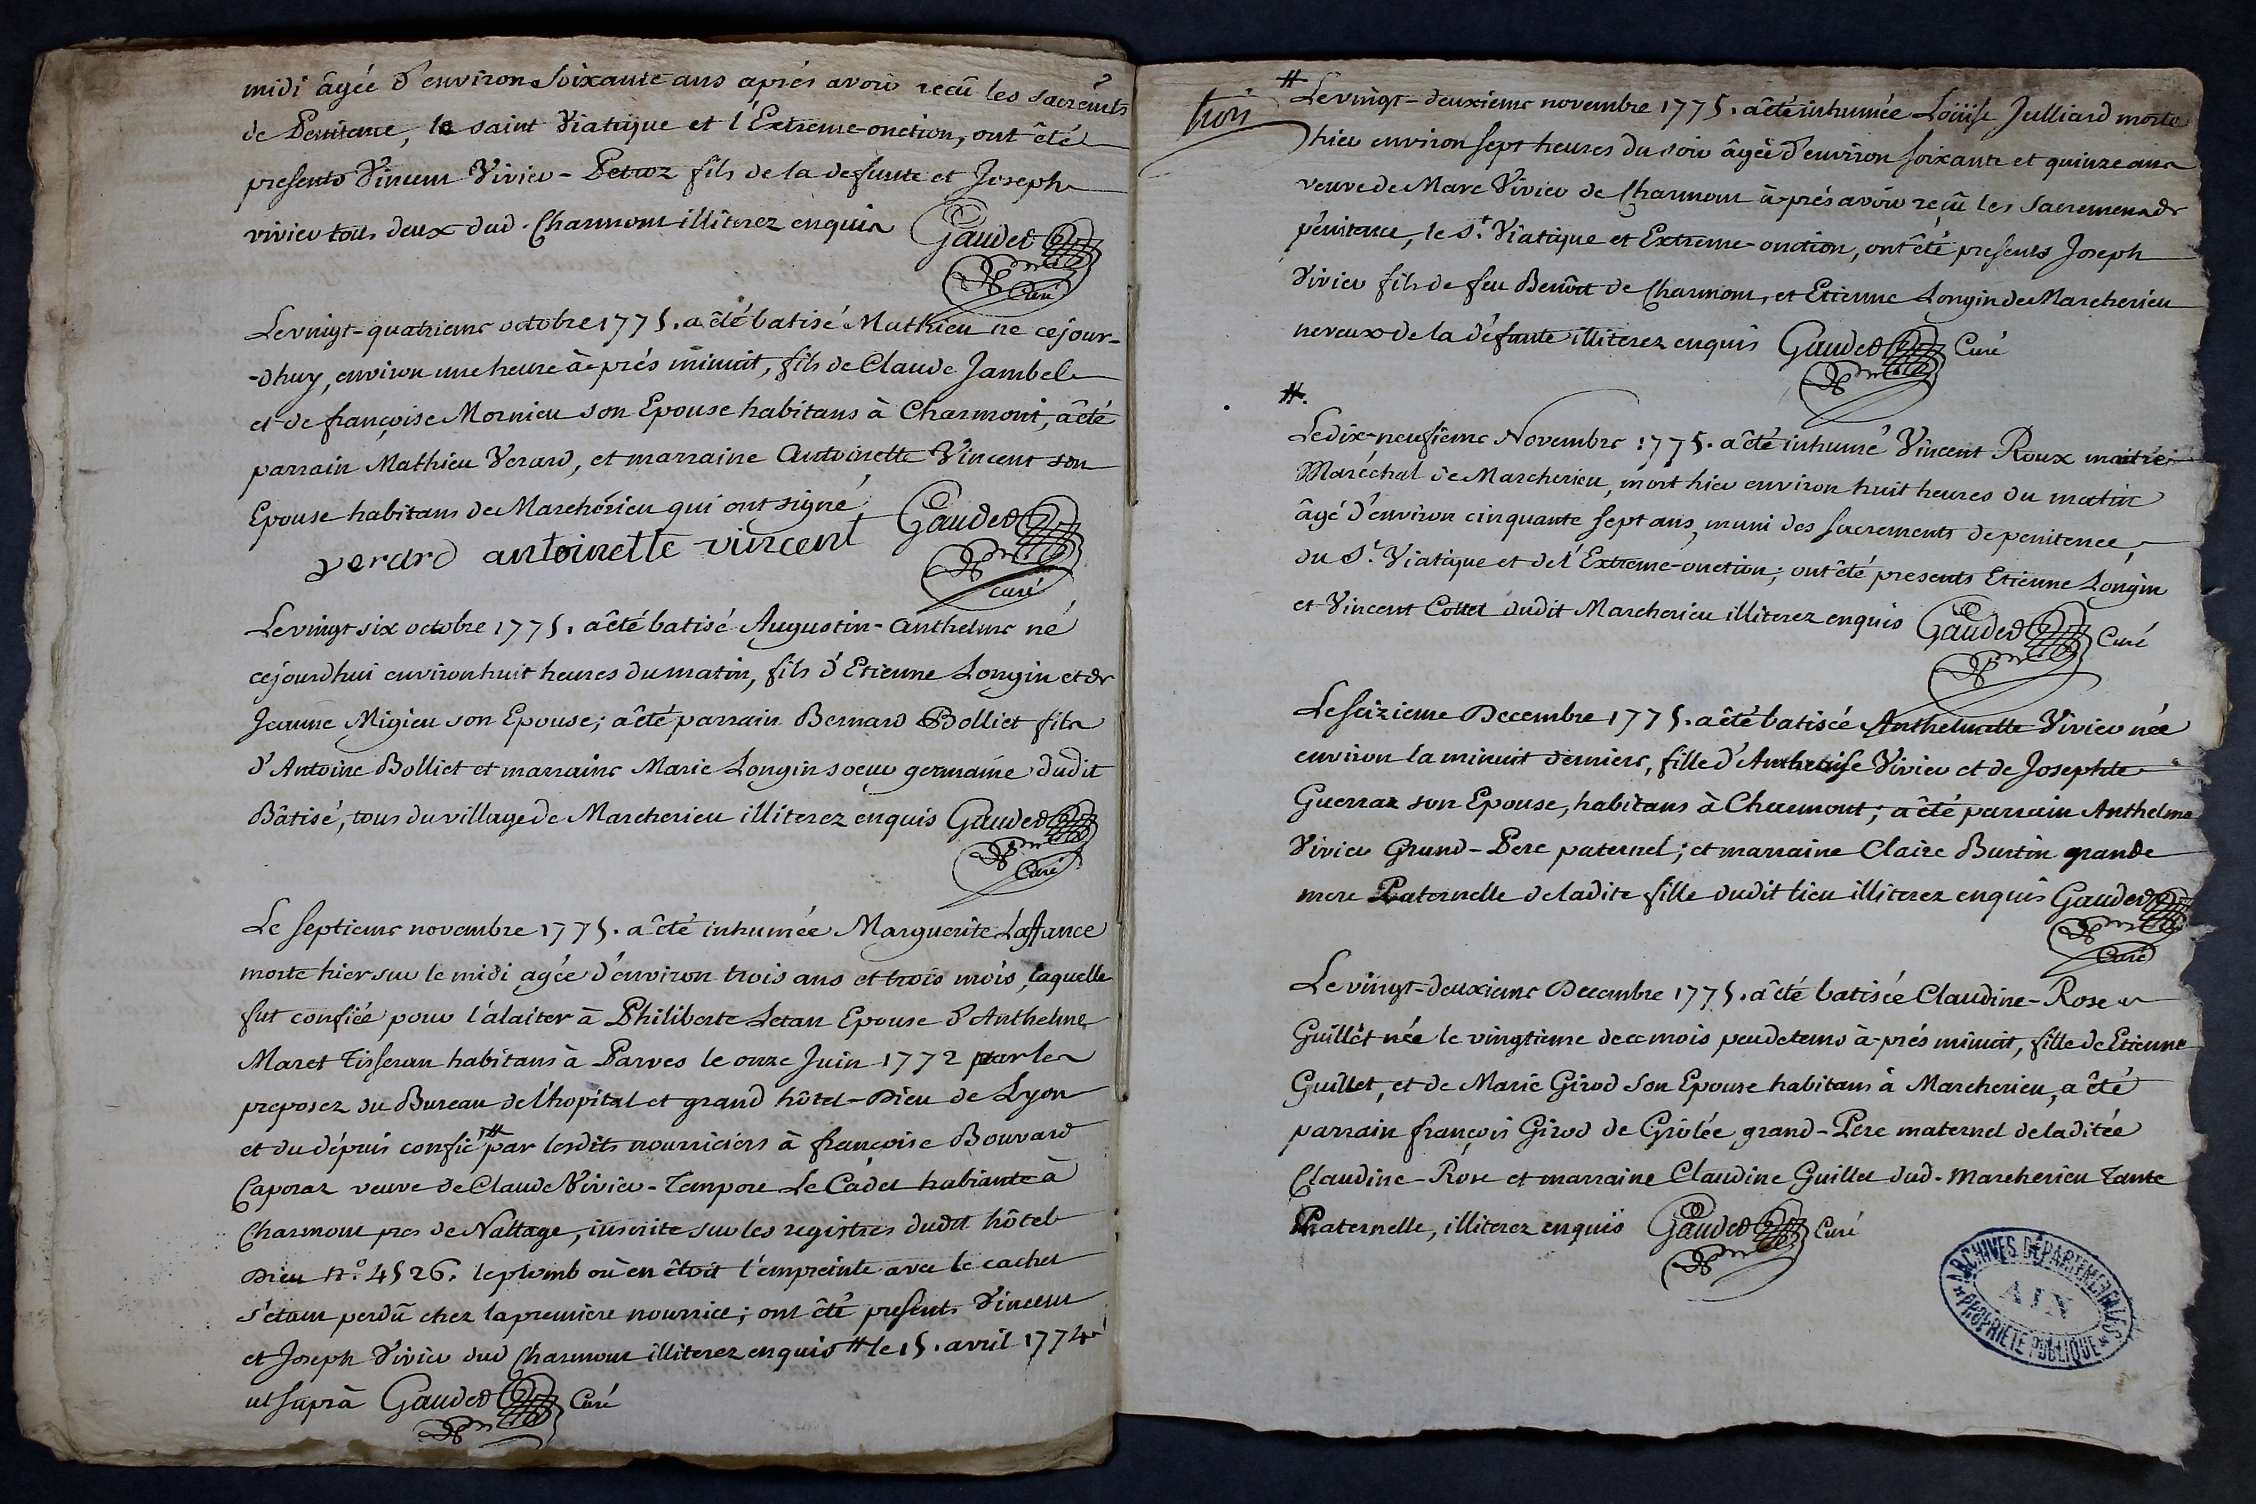 midi âgée d'environ Soixante ans aprés avoir recû les sacremts
de Penitence, le saint Viatique et l'Extreme-onction, ont êté
presents Vincent Vivier-Petroz fils de la defunte et Joseph
vivier tous deux dud. Charmont illiterez enquis Gaudet
Curé
Le vingt-quatrieme octobre 1775. a êté batisé Mathieu né cejour-
-dhuy, environ une heure à-prés minuit, fils de Claude Jambel
et de françoise Mornieu son Epouse habitans à Charmont, a êté
parrain Mathieu Verard, et marraine Antoinette Vincent son
Epouse habitans de Marcherieu qui ont signé Gaudet
verard antoinette vincent
curé
Le vingt six octobre 1775. a êté batisé Augustin-Anthelme né
cejourdhui environ huit heures du matin, fils d'Etienne Longin et de
Jeanne Migieu son Epouse; a êté parrain Bernard Bolliet fils
d'Antoine Bolliet et marraine Marie Longin soeur germaine dudit
Bâtisé, tous du village de Marcherieu illiterez enquis Gaudet
Curé
Le septieme novembre 1775. a êté inhumée Marguerite Laffance
morte hier sur le midi agée d'environ trois ans et trois mois, laquelle
fut confiée pour l'alaiter à Philiberte Letan Epouse d'Anthelme
Maret Tisseran habitans à Parves le onze Juin 1772 par les
preposez du Bureau de l'hopital et grand hôtel-Dieu de Lyon
et du dépuis confié # par lesdits nourriciers à françoise Bouvard
Caporaz veuve de Claude Vivier-Tempore Le Cadet habitante à
Charmont pres de Nattage, inscrite sur les registres dudit hôtel
Dieu N.º 4526. le plomb où en êtoit l'empreinte avec le cachet
s'êtant perdû chez la premiere nourrice; ont êté presents Vincent
et Joseph Vivier dud Charmont illiterez enquis # le 15. avril 1774
ut suprà Gaudet Curé
trois
# Le vingt-deuxieme novembre 1775. a êté inhumée Loüise Julliard morte
hier environ sept heures du soir âgée d'environ soixante et quinze ans
veuve de Marc Vivier de Charmont à-prés avoir reçû les Sacremens de
pénitence, le St. Viatique et Extreme-onction, ont êté presents Joseph
Vivier fils de feu Benôit de Charmont, et Etienne Longin de Marcherieu
neveux de la défunte illiterez enquis Gaudet Curé
#.
Le dix-neufieme Novembre 1775. a êté inhumé Vincent Roux maitre
Maréchal de Marcherieu, mort hier environ huit heures du matin
âgé d'environ cinquante sept ans, muni des sacrements de penitence,
du St. Viatique et de l'Extreme-onction; ont êté presents Etienne Longin
et Vincent Collet dudit Marcherieu illiterez enquis Gaudet Curé
Le seizieme Decembre 1775. a êté batisée Anthelmette Vivier née
environ la minuit derniere, fille d' Vivier et de Josephte
Guerraz son Epouse, habitans à Charmont; a êté parrain Anthelme
Vivier Grand-Pere paternel; et marraine Claire Burtin grande
mere Paternelle de ladite fille dudit lieu illiterez enquis Gaudet
Curé
Le vingt-deuxieme Decembre 1775. a êté batisée Claudine-Rose
Guillet née le vingtieme de ce mois peu de tems à-prés minuit, fille de Etienne
Guillet, et de Marie Girod son Epouse habitans à Marcherieu, a êté
parrain françois Girod de Grolée grand-Pere maternel de ladite
Claudine-Rose et marraine Claudine Guillet dud. Marcherieu Tante
Paternelle, illiterez enquis Gaudet Curé
ARCHIVES DÉPARTEMENTALES
AIN
PROPRIÉTÉ PUBLIQUE